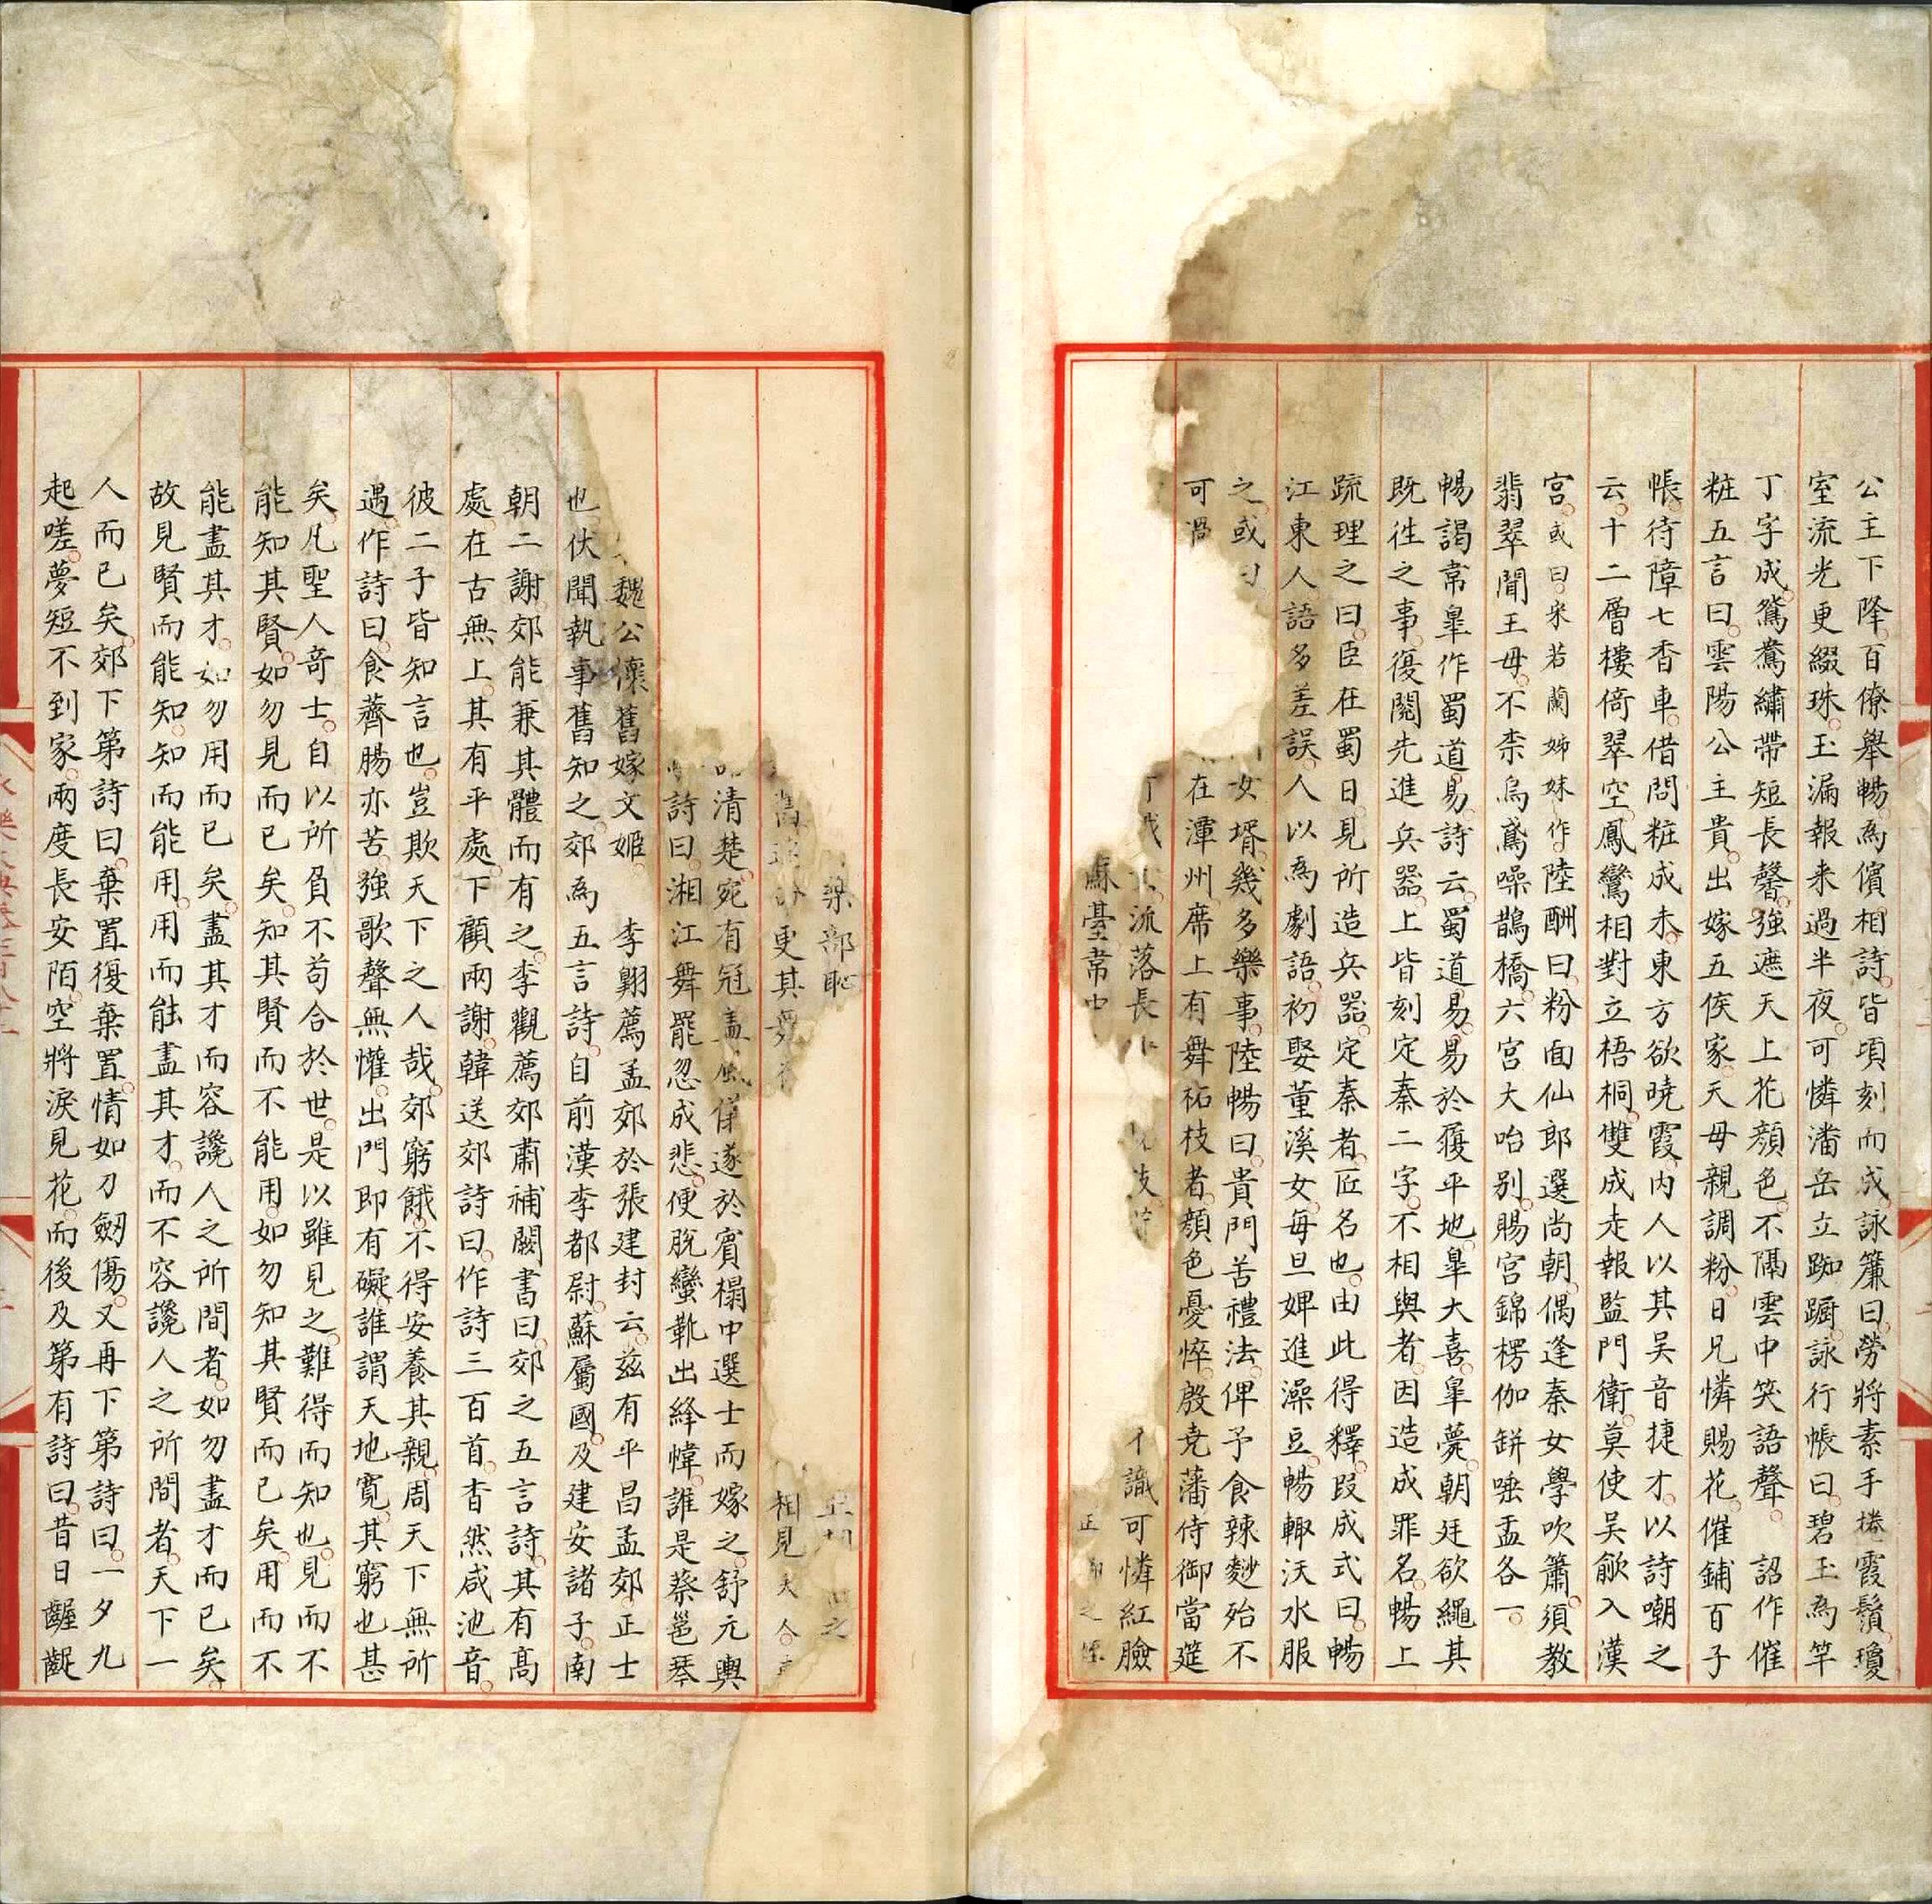 公主下降百僚舉暢為儐相詩皆頃刻而成詠簾曰勞將素手捲霞鬚瓊
室流光更綴珠玉漏報来過半夜可憐潘岳立踟蹰詠行帳曰碧玉為竿
丁字成鴛鴦繡帶短長馨強遮天上花顔色不隔雲中笑語聲 詔作催
粧五言曰雲陽公主貴出嫁五侯家天母親調粉日兄憐賜花催鋪百子
帳待障七香車借問粧成未東方欲曉霞内人以其吴音捷才以詩嘲之
云十二層樓倚翠空鳳鸞相對立梧桐雙成走報監門衛莫使吴歈入漢
宮或曰宋若蘭姊妹作陸酬曰粉面仙郎選尚朝偶逢秦女學吹簫須教
翡翠聞王母不柰烏鳶噪鵲橋六宮大咍别賜宮錦楞伽缾唾盂各一
暢謁韋臯作蜀道易詩云蜀道易易於履平地臯大喜臯薨朝廷欲繩其
既徃之事復閱先進兵器上皆刻定秦二字不相與者因造成罪名暢上
疏理之曰臣在蜀日見所造兵器定秦者匠名也由此得釋段成式曰暢
江東人語多差誤人以為劇語初娶董溪女每旦婢進澡豆暢輒沃水服
之或曰 女壻幾多樂事陸暢曰貴門苦禮法俾予食辣麨殆不
可過 在潭州席上有舞柘枝者顔色憂悴殷尭藩侍御當筵
流落長 不識可憐紅臉
蘇臺韋中 正 之
樂部恥
更其舞 相見大人
清楚宛有冠盖風儀遂於賓榻中選士而嫁之舒元輿
詩曰湘江舞罷忽成悲便脫蠻靴出絳幃誰是蔡邕琴
魏公懷舊嫁文姬 李翺薦孟郊於張建封云兹有平昌孟郊正士
也伏聞執事舊知之郊為五言詩自前漢李都尉蘇屬國及建安諸子南
朝二謝郊能兼其體而有之李觀薦郊肅補闕書曰郊之五言詩其有髙
處在古無上其有平處下顧兩謝韓送郊詩曰作詩三百首杳然咸池音
彼二子皆知言也豈欺天下之人哉郊窮餓不得安養其親周天下無所
遇作詩曰食薺腸亦苦強歌聲無懽出門即有礙誰謂天地寛其窮也甚
矣凡聖人竒士自以所負不苟合於世是以雖見之難得而知也見而不
能知其賢如勿見而已矣知其賢而不能用如勿知其賢而已矣用而不
能盡其才如勿用而已矣盡其才而容讒人之所間者如勿盡才而已矣
故見賢而能知知而能用用而能盡其才而不容讒人之所間者天下一
人而已矣郊下第詩曰棄置復棄置情如刀劒傷又再下第詩曰一夕九
起嗟夢短不到家兩度長安陌空將淚見花而後及第有詩曰昔日齷齪